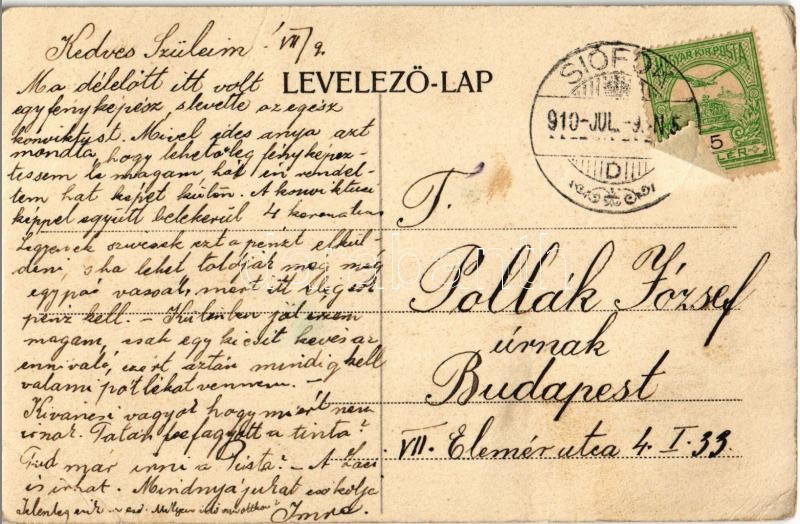 Kedves Szüleim! VII/9.
Ma délelött itt volt
egy fényképész, s levette az egész
konviktust. Mivel édes anya azt
mondta, hogy lehetöleg fényképez-
tessem le magam hát én rendel-
tem hat képet külön. A konviktusi
képpel együtt belekerül 4 koronába
Legyenek szívesek ezt a pénzt elkül-
deni, s ha lehet toldják meg még
egy pár vassal, mert itt elég
pénz kell. – Különben jól érzem
magam, csak egy kicsit kevés az
ennivaló, ezért aztán mindig kell
valami pótlékot vennem. –
Kiváncsi vagyok hogy miért nem
irnak. Talán befagyott a tinta?
Tud már irni a Pista? – A Laci
is irhat. Mindnyájukat csókolja
Imre
LEVELEZŐ-LAP
SIÓFOK
910-JUL.-9. N. 5
D
MAGYAR KIR. POSTA
5
LÉR
T.
Pollák József
úrnak
Budapest
VII. Elemér utca 4. I. 33.
darabanth